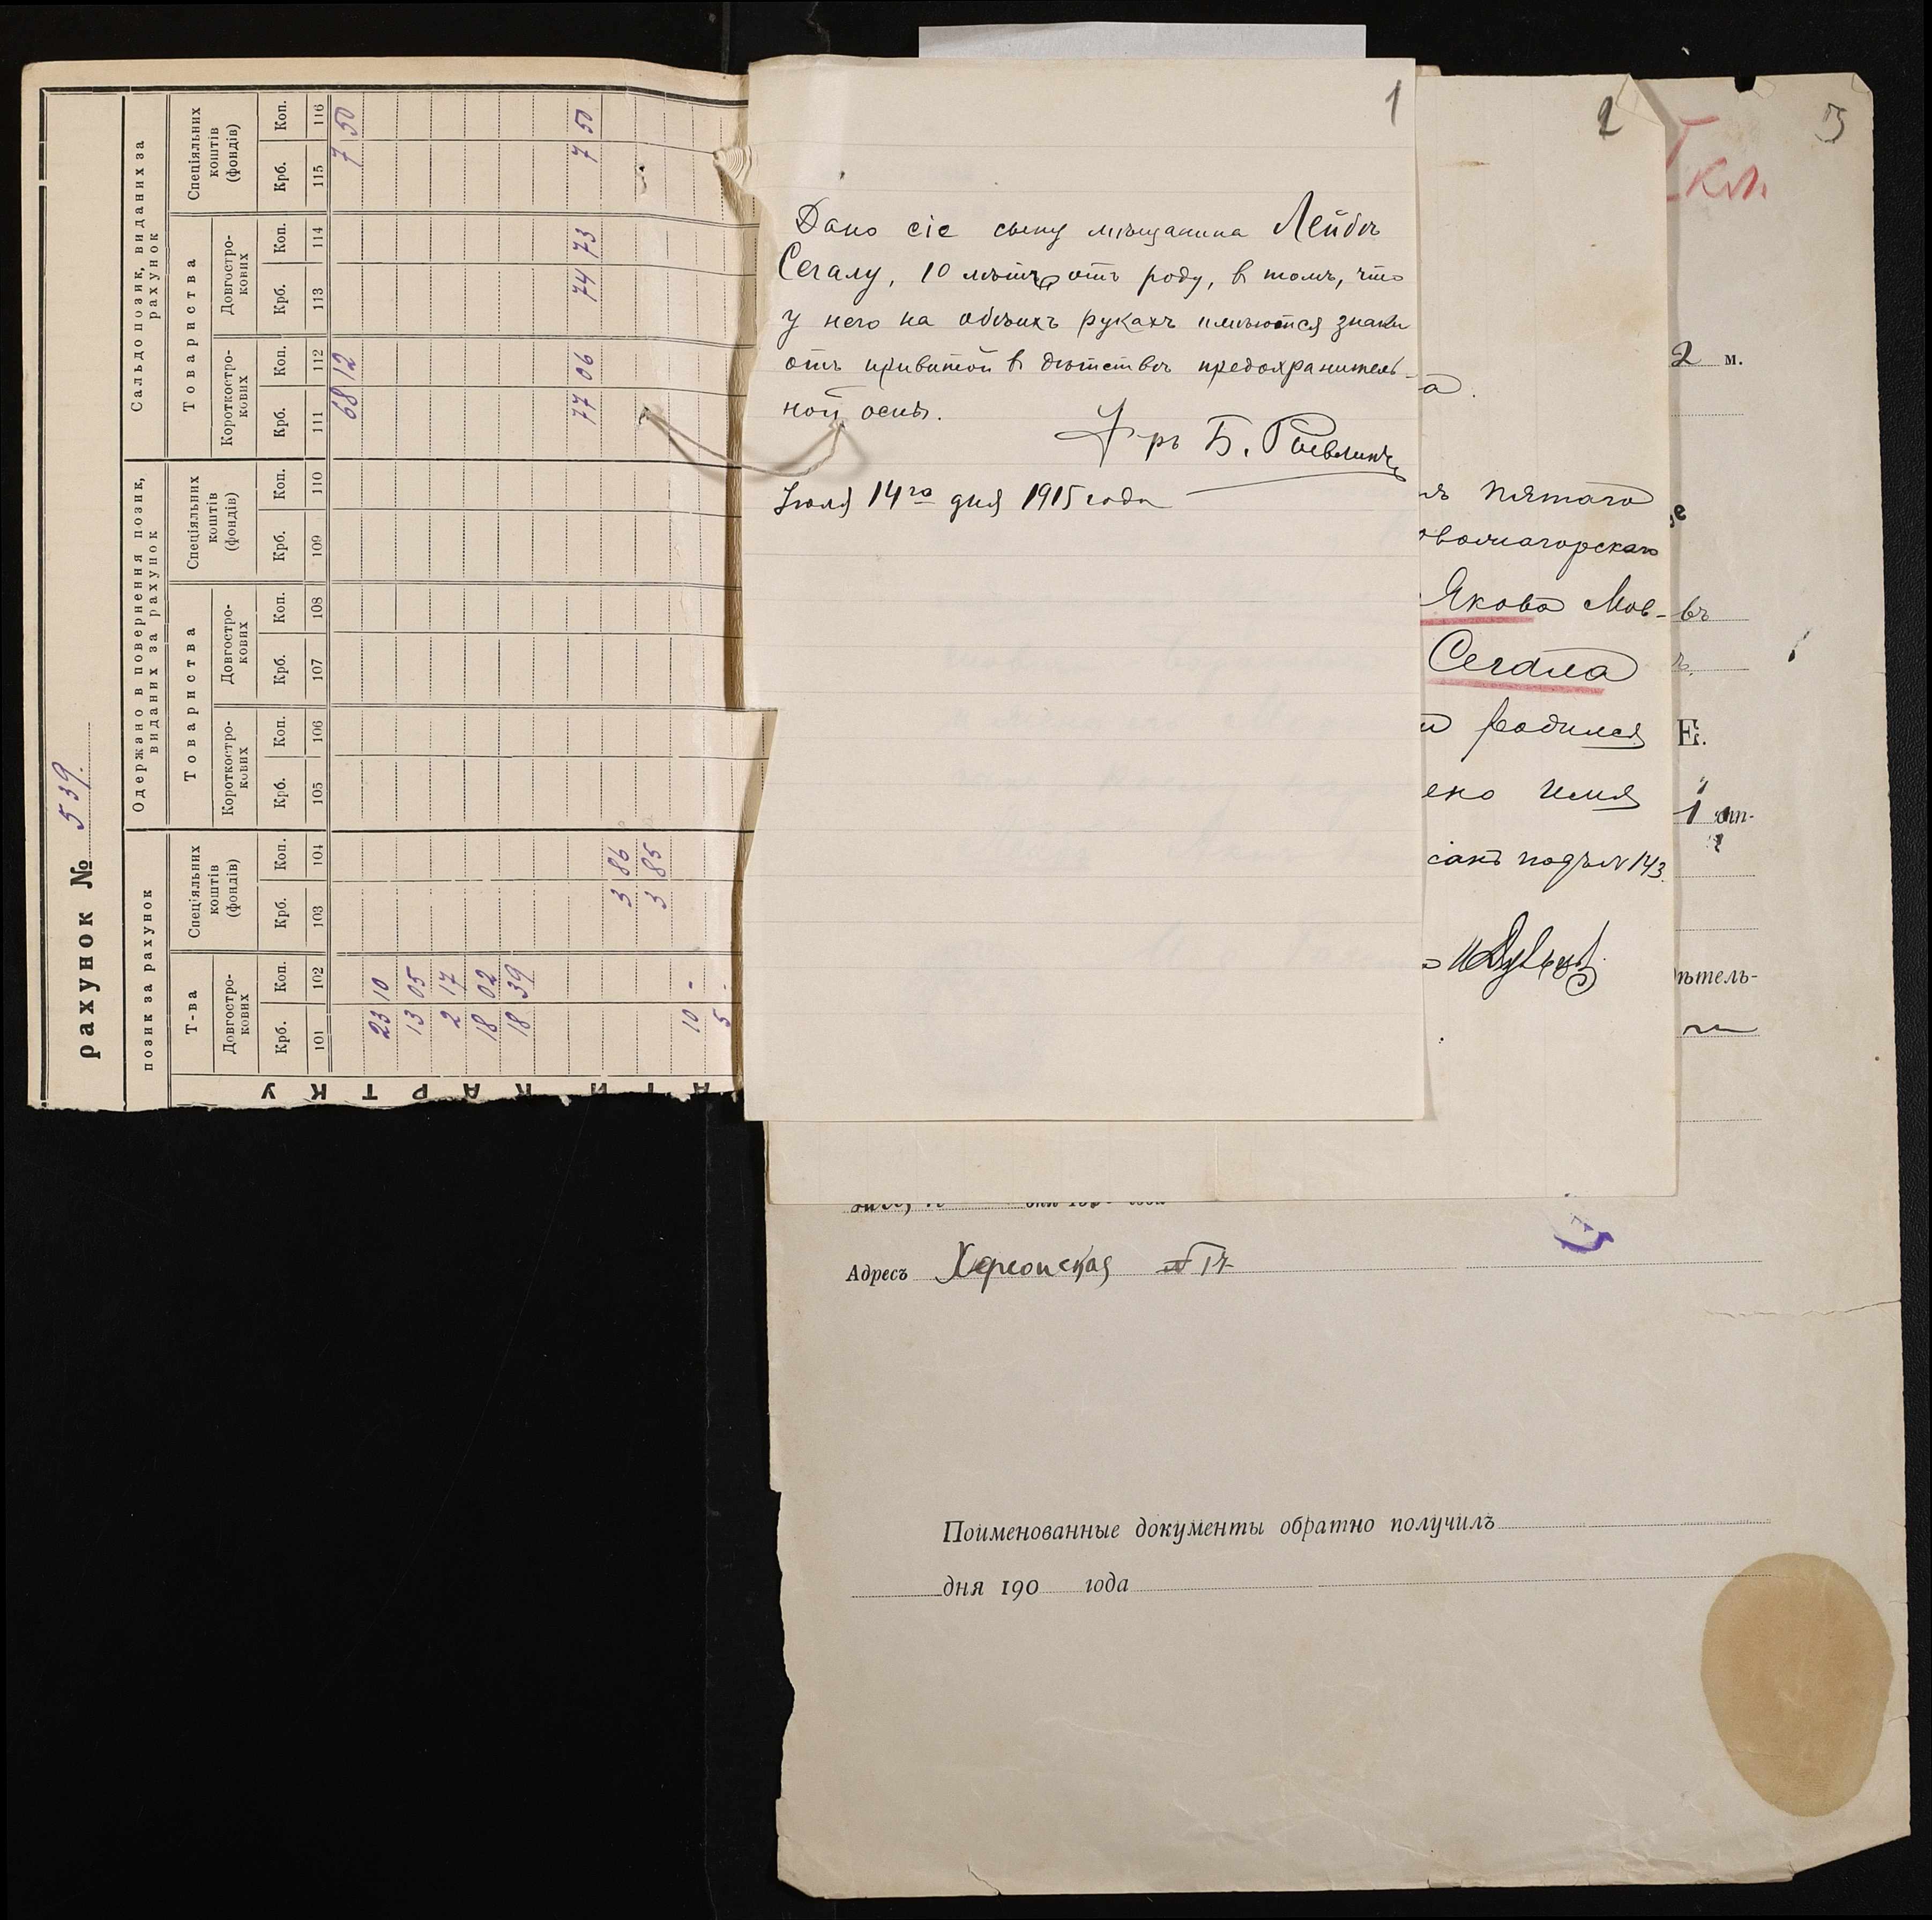 рахунок № 539.
позик за рахунок
Одержано в повернення позик,
виданих за рахунок
Сальдо позик, виданих за
рахунок
Т-ва
Спеціяльних
коштів
(фондів)
Товариства
Спеціяльних
коштів
(фондів)
Товариства
Спеціяльних
коштів
(фондів)
Довгостро-
кових
Короткостро-
кових
Довгостро-
кових
Короткостро-
кових
Довгостро-
кових
Крб. Коп. Крб. Коп. Крб. Коп. Крб. Коп. Крб. Коп. Крб. Коп. Крб. Коп. Крб. Коп.
101 102 103 104 105 106 107 108 109 110 111 112 113 114 115 116
68 12 7 50
23 10
13 05
2 17
18 02
18 39
77 06 74 73 7 50
3 86
3 85
10 -
5 -
КАРТКУ
1
Дано сіе сыну мѣщанина Лейбѣ
Сегалу, 10 лѣтъ отъ роду, в томъ, что
у него на обѣихъ рукахъ имѣются знаки
отъ привитой в дѣтствѣ предохранитель-
ной оспы.
Б.
Іюля 14го дня 1915 года
2
а.
пятаго
Якова Мов-
Сегала
родился
ено имя
санъ подъ № 143.
3
кл.
2 м.
въ
Е.
1 отп-
ѣтель-
Адресъ Херсонская № 17
Поименованные документы обратно получилъ
дня 190 года